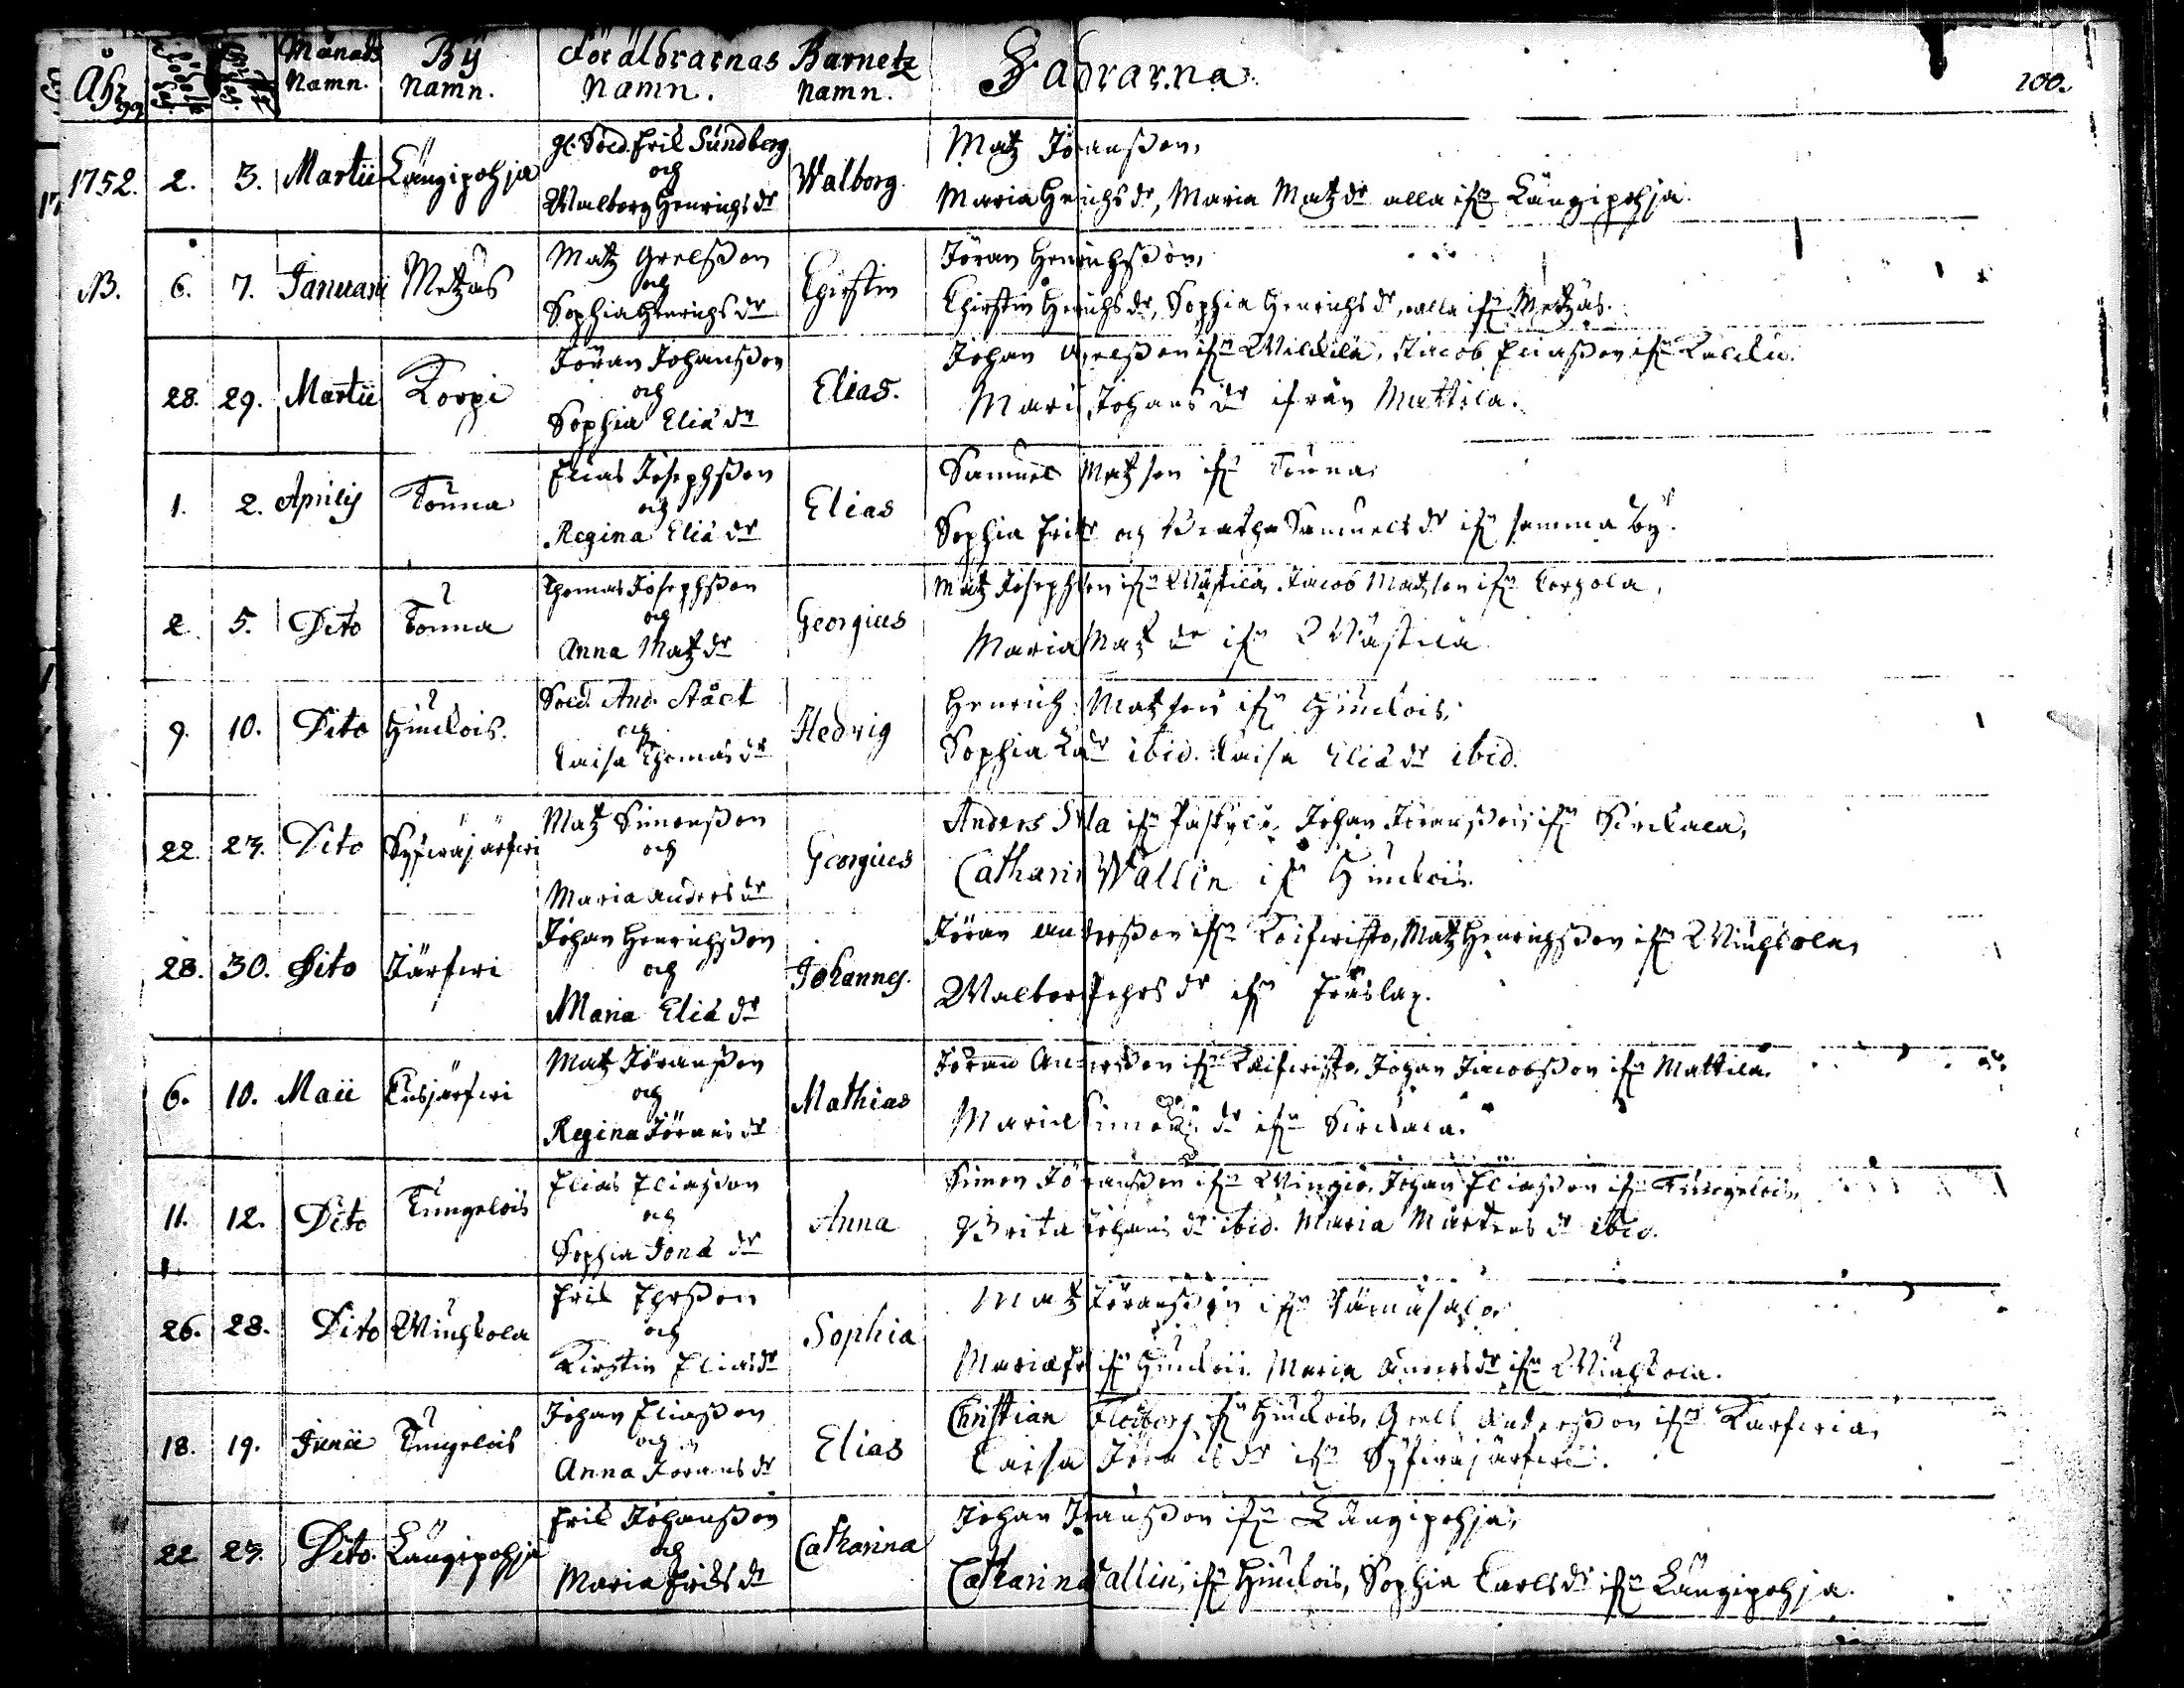 Åhr Månads Namn. By Namn. Föräldrarnas Namn. Barnetz Namn. Fadrarna. 200.
1752. 2. 3. Martii Längipohja gl. Sold. Erik Sundberg och Walborg Henrichs dr Walborg.
Matz Jöransson,
Maria Henrichs dr, Maria Matz dr alla ifrn Längipohja.
NB. 6. 7. Januarii Metzäs Matz Grelsson och Sophia Henrichs dr Christin
Jöran Henrichsson,
Christin Henrichs dr, Sophia Henrichs dr, alla ifrn Metzäs.
28. 29. Martii Korpi Jöran Johansson och Sophia Eliæ dr Elias.
Johan Grelsson ifrn Jacob Eliasson ifrn
Maria Johans dr ifrån Mattila.
1. 2. Aprilis Touna Elias Josephsson och Regina Eliæ dr Elias
Samuel Matzson ifrn Touna,
Sophia Eriks dr och Samuels dr ifrn samma by.
2. 5. Dito Touna Thomas Josephsson och Anna Matz dr Georgius
Matz Josephson ifrn Wästilä, Jacob Matzson ifrn Corpola,
Maria Matz dr ifrn Wästilä
9. 10. Dito Hiuckois. Sold. And. Ståct och Caisa Thomas dr Hedvig
Henrich Matzson ifrn Hiuckois,
Sophia ibid. Caisa Eliæ dr ibid.
22. 23. Dito Syswäjärfwi Matz Simonsson och Maria Anders dr Georgius
Anders ifrn Johan Jöransson ifrn Sirckala,
Catharin Wallin ifrn Hiuckois.
28. 30. Dito Järfwi Johan Henrichsson och Maria Eliæ dr Johannes.
Jöran Andersson ifrn Koifwisto, Matz Henrichsson ifrn Wiuhkola,
Walborg dr ifrn
6. 10. Maii Cusjärfwi Matz Jöransson och Regina Jörans dr Mathias
Jöran Andersson ifrn Koifwisto, Johan Jacobsson ifrn Mattila.
Maria Simons dr ifrn Sirckala.
11. 12. Dito Tungelois Elias Eliasson och Sophia Jonæ dr Anna
Simon Jöransson ifrn Wingiö, Johan Eliasson ifrn Tungelois,
Brita Johans dr ibid. Maria Mårtens dr ibid.
26. 28. Dito Wiuhkola Erik Ehrsson och Kirstin Elias dr Sophia
Matz Jöransson ifrn
Maria ifrn Hiuckois. Maria Anders dr ifrn Wiuhkola.
18. 19. Junii Tungelois Johan Eliasson och Anna Jörans dr Elias
Christian ifrn Hiuckois, Grels Andersson ifrn Karfwia,
Caisa Jörans dr ifrn Syswäjärfwi.
22 23. Dito. Längipohja Erik Johansson och Maria Eriks dr Catharina
Johan Jöransson ifrn Längipohja,
Catharina Wallin, ifrn Hiuckois, Sophia Carls dr ifrn Längipohja.